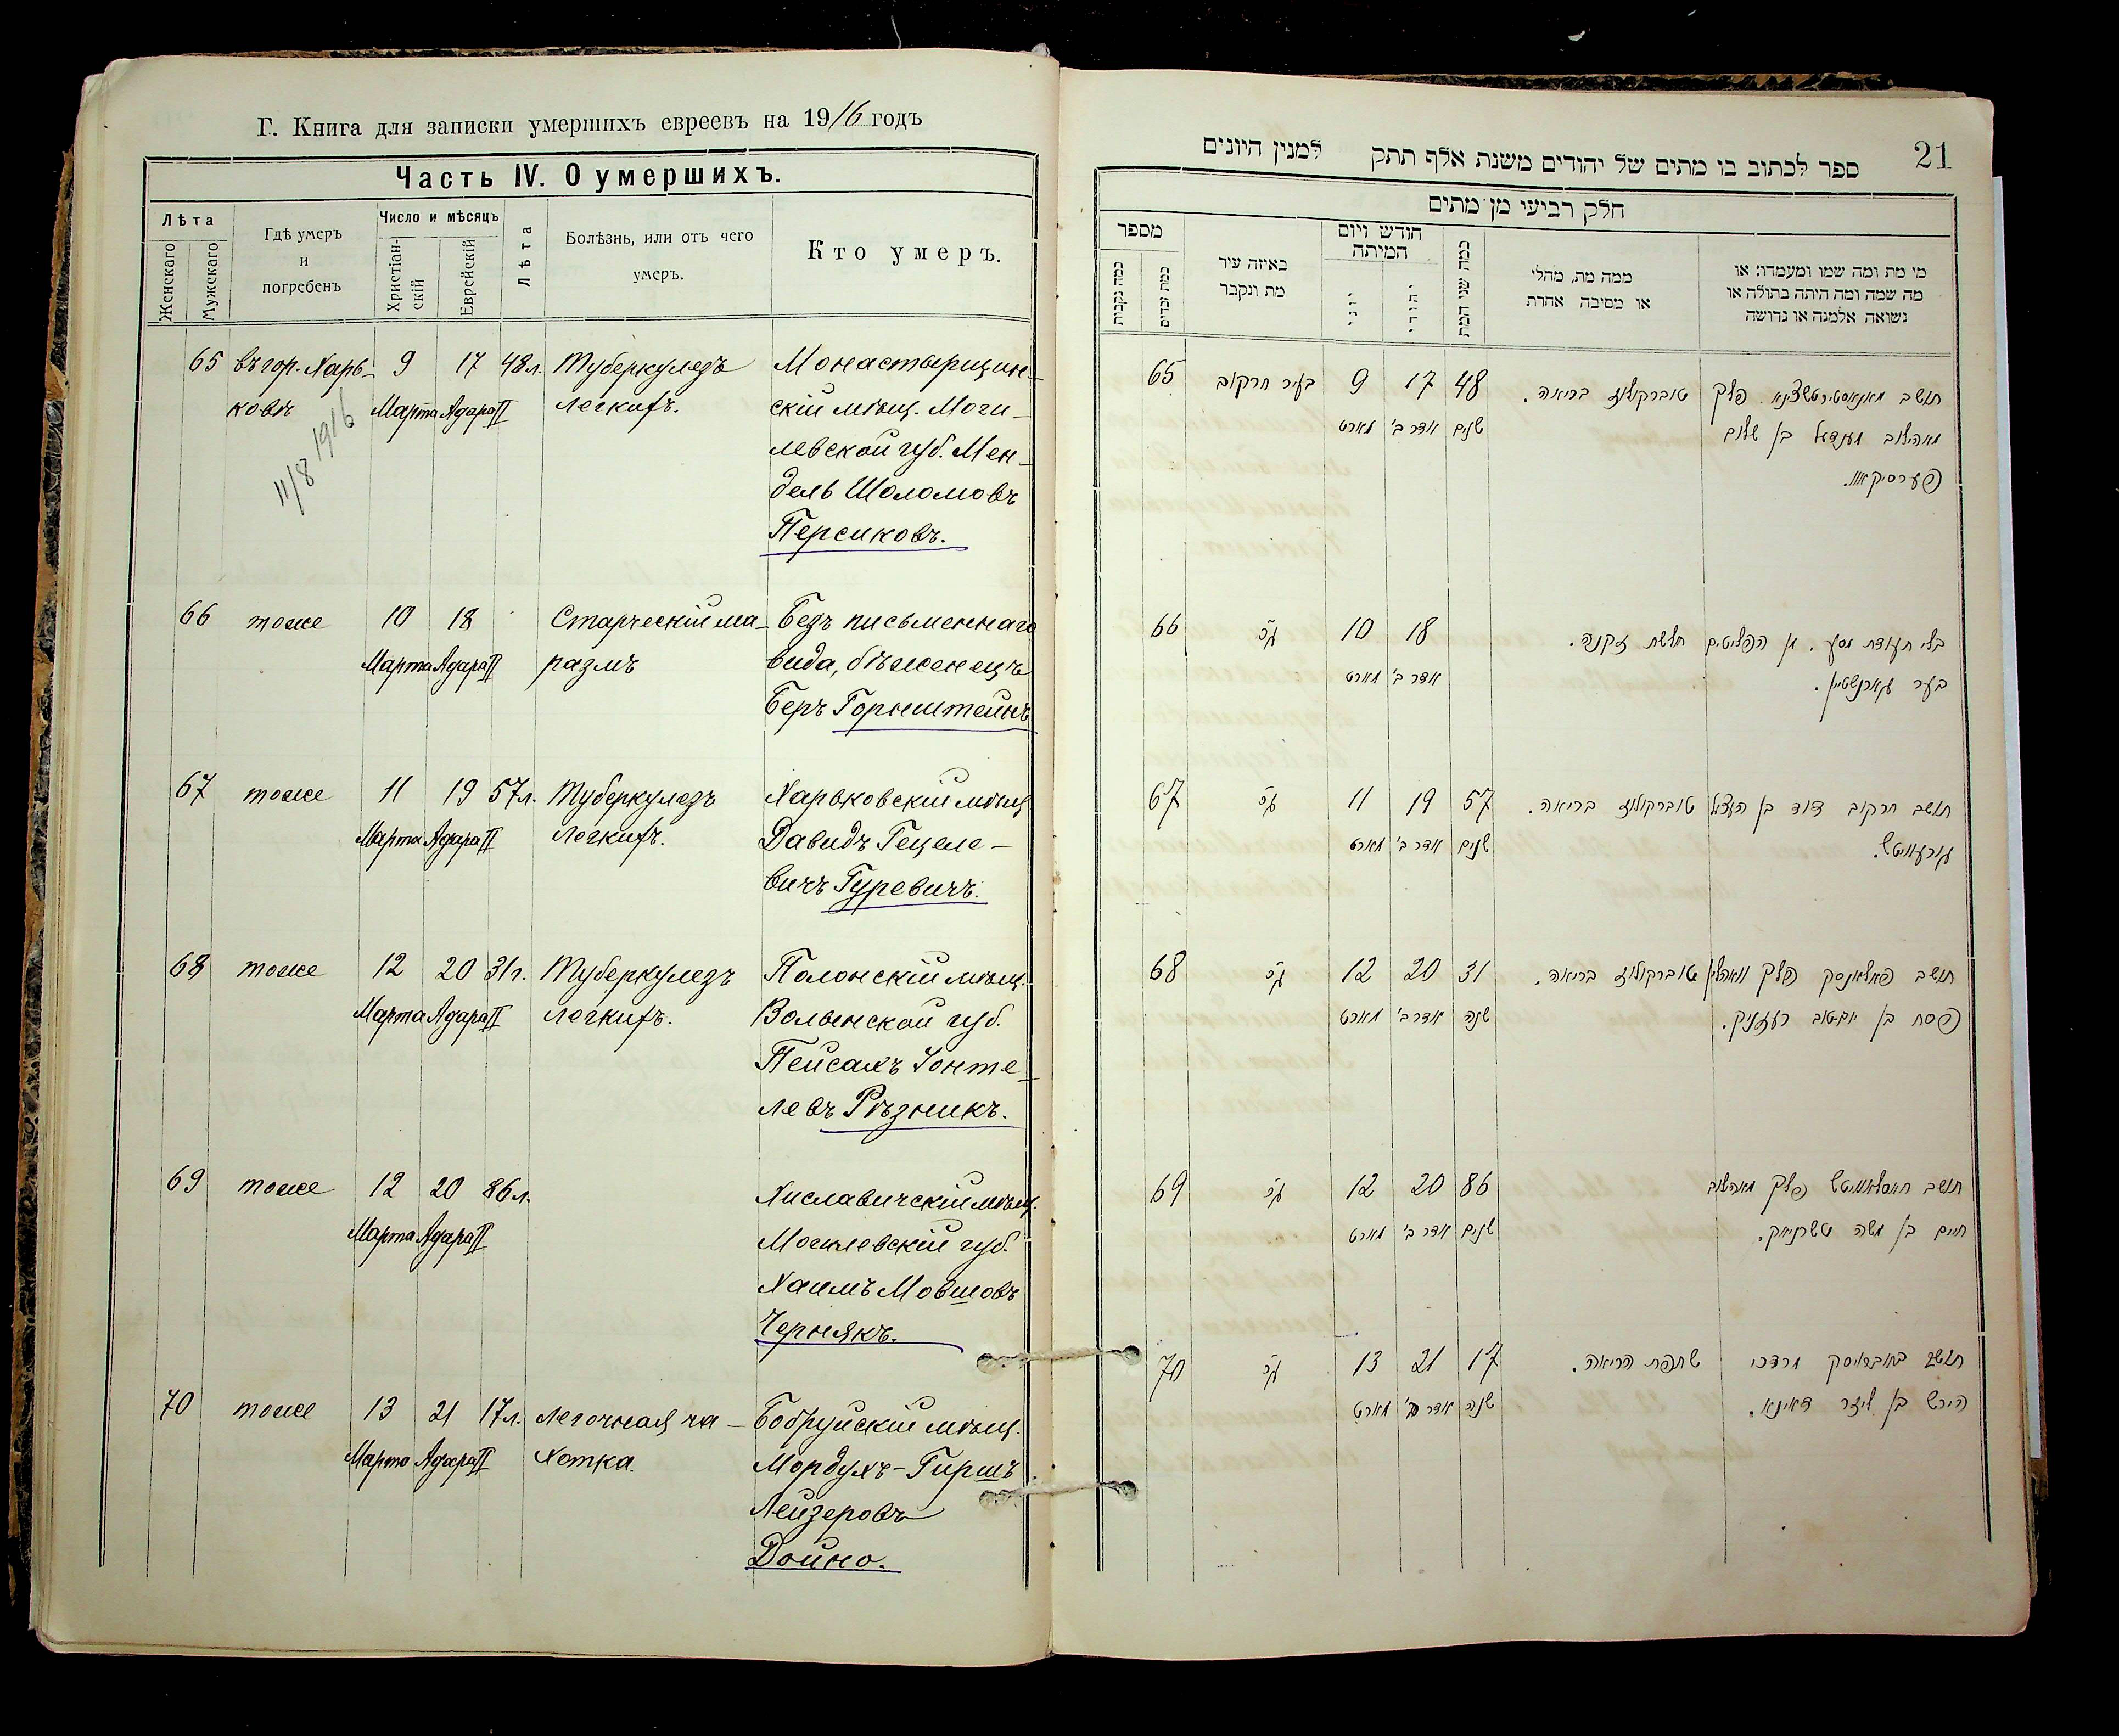 Г. Книга для записки умершихъ евреевъ на 1916 годъ
Часть IV. О умершихъ.
Лѣта
Женскаго
Мужскаго
Гдѣ умеръ
и
погребенъ
Число и мѣсяцъ
Христіан-
скій
Еврейскій
Лѣта
Болѣзнь, или отъ чего
умеръ.
Кто умеръ.
65 въ гор. Харь- 9 17 48 л. Туберкулезъ Монастырщин-
ковѣ Марта Адара II легкихъ. скій мѣщ. Моги-
11/8 1916
левской губ. Мен-
дель Шоломовъ
Персиковъ.
66 тоже 10 18 Старческій ма- Безъ письменнаго
Марта Адара II размъ вида, бѣженецъ
Беръ Горнштейнъ
67 тоже 11 19 57 л. Туберкулезъ Харьковскій мѣщ
Марта Адара II легкихъ. Давидъ Гецеле-
вичъ Гуревичъ.
68 тоже 12 20 31 г. Туберкулезъ Полонскій мѣщ.
Марта Адара II легкихъ. Волынской губ.
Пейсахъ Іонте-
левъ Рѣзникъ.
69 тоже 12 20 86 л. Хиславичскій мѣщ.
Марта Адара II Могилевскій губ.
Хаимъ Мовшовъ
Чернякъ.
70 тоже 13 21 17 л. Легочная ча- Бобруйскій мѣщ.
Марта Адара II хотка. Мордухъ-Гиршъ
Лейзеровъ
Дойно.
21
ספר לכתוב בו מתים של יהודים משנת אלף תתק למנין היונים
חלק רביעי מן מתים
מספר
כמה נקבות
כמה זכרים
באיזה עיר
מת ונקבר
חודש ויום
המיתה
יוני
יהודי
כמה שני המת
ממה מת, מהלי
או מסיבה אחרת
מי מת ומה שמו ומעמדו: או
מה שמה ומה היתה בתולה או
נשואה אלמנה או גרושה
65 בעיר חרקוב 9 17 48 טוברקולוז בריאה. תושב מאנאסטירטשצינא פלך
מארט אדר ב' שנים מאהילוב מענדעל בן שלום
פערסיקאוו.
66 10 18 חולשת זקנה. בלי תעודת מסע. מן הפליטים
מארט אדר ב' בער גארנשטיין.
67 11 19 57 טוברקולוז בריאה. תושב חרקוב דוד בן העצל
מארט אדר ב' שנים גורעוויטש.
68 12 20 31 טוברקולוז בריאה. תושב פאלאנסק פלך וואהלין
מארט אדר ב' שנה פסח בן יום-טוב רעזניק.
69 12 20 86 תושב חאסלאוויטש פלך מאהלוב
מארט אדר ב' שנים חיים בן משה טשרניאק.
70 13 21 17 שחפת הריאה. תושב באברויסק מרדכי
מארט אדר ב' שנה הירש בן ליזר דאינא.